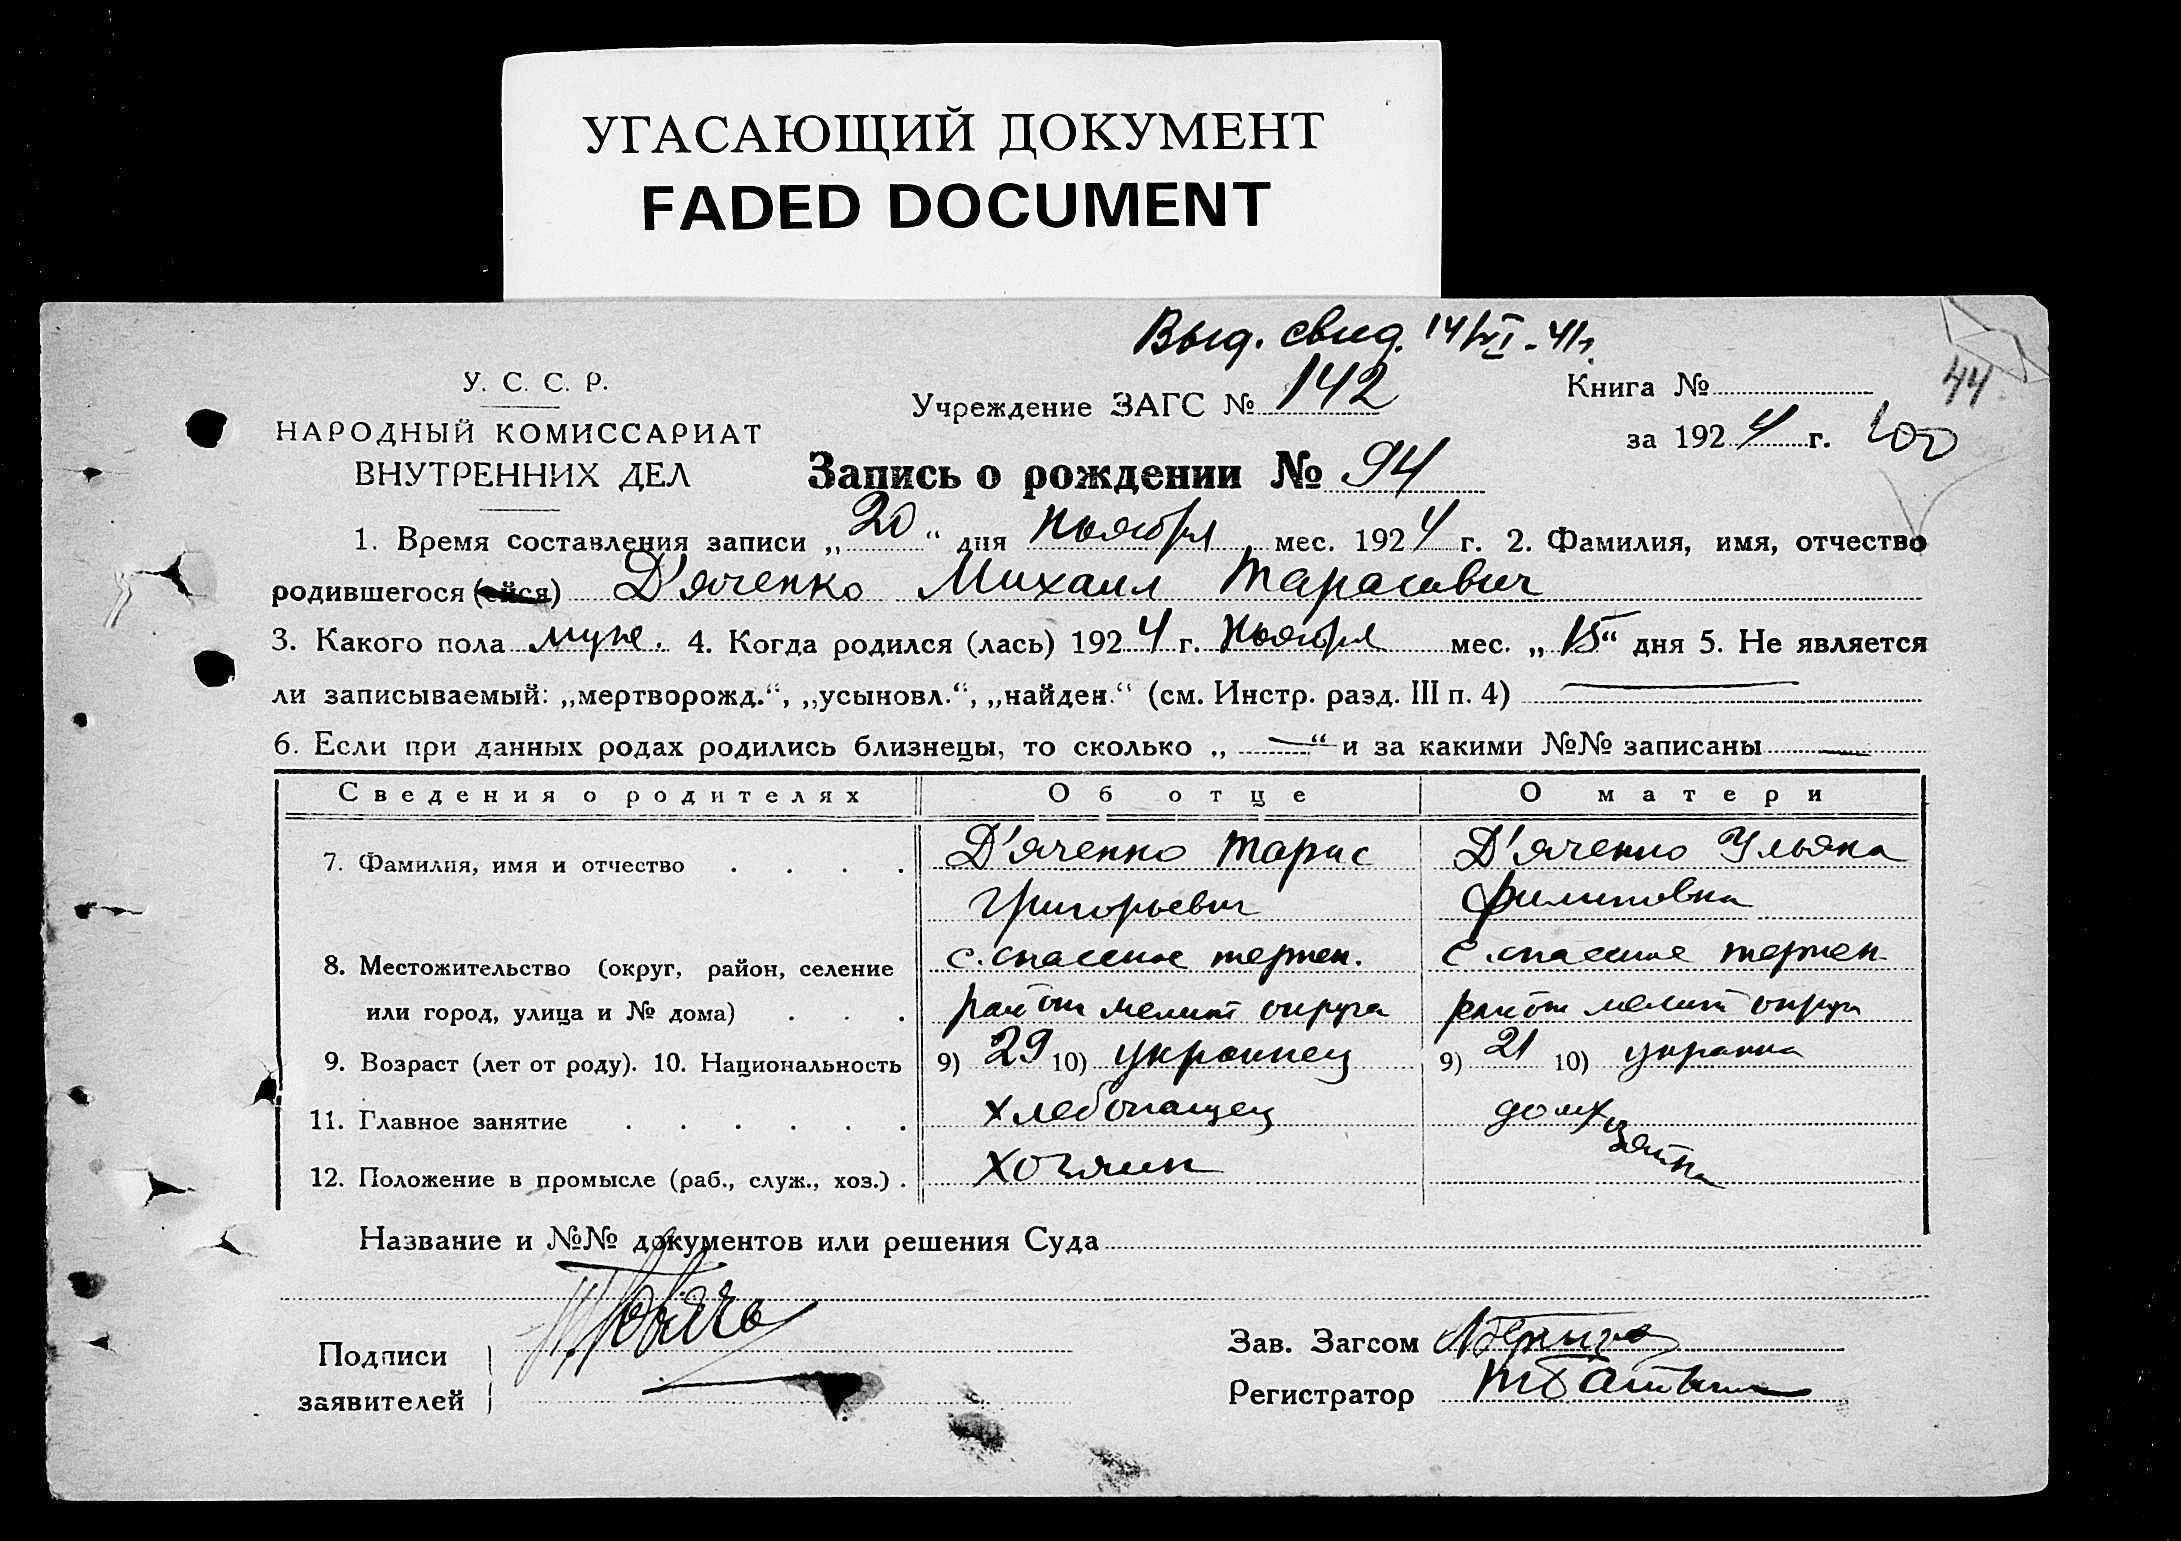 УГАСАЮЩИЙ ДОКУМЕНТ
FADED DOCUMENT
Выд. свид. 14/VI-41г.
44
У. С. С. Р.
НАРОДНЫЙ КОМИССАРИАТ
ВНУТРЕННИХ ДЕЛ
Учреждение ЗАГС № 142
Книга №
за 1924 г. 100
Запись о рождении № 94
1. Время составления записи „20“ дня ноября мес. 1924 г. 2. Фамилия, имя, отчество
родившегося (ейся) Д'яченко Михаил Тарасович
3. Какого пола муж. 4. Когда родился (лась) 1924 г. ноября мес. „15“ дня 5. Не является
ли записываемый: „мертворожд.“, „усыновл.“, „найден.“ (см. Инстр. разд. III п. 4) —
6. Если при данных родах родились близнецы, то сколько „—“ и за какими №№ записаны —
Сведения о родителях Об отце О матери
7. Фамилия, имя и отчество . . . . Д'яченко Тарас Д'яченко Ульяна
Григорьевич Филиповна
8. Местожительство (округ, район, селение с. спасское терпен. с. спасское терпен.
или город, улица и № дома) . . . район мелит округа район мелит округа
9. Возраст (лет от роду). 10. Национальность 9) 29 10) украинец 9) 21 10) украинка
11. Главное занятие . . . . . . хлебопашец домхозяйка
12. Положение в промысле (раб., служ., хоз.) . хозяин
Название и №№ документов или решения Суда
Подписи
заявителей
Зав. Загсом
Регистратор